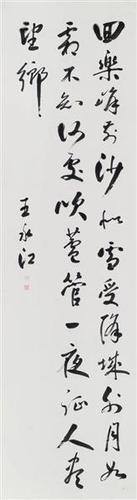 回樂峰前沙似雪受降城外月如
霜不知何處吹蘆管一夜征人盡
望鄉
王永江